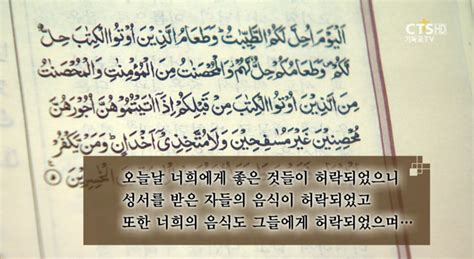 CTSHD
기독교TV
اَلْيَوْمَ اُحِلَّ لَكُمُ الطَّيِّبٰتُ ؕ وَطَعَامُ الَّذِيْنَ اُوْتُوا الْكِتٰبَ حِلٌّ
لَّكُمْ ۪ وَطَعَامُكُمْ حِلٌّ لَّهُمْ ؗ وَالْمُحْصَنٰتُ مِنَ الْمُؤْمِنٰتِ وَالْمُحْصَنٰتُ
مِنَ الَّذِيْنَ اُوْتُوا الْكِتٰبَ مِنْ قَبْلِكُمْ اِذَاۤ اٰتَيْتُمُوْهُنَّ اُجُوْرَهُنَّ
مُحْصِنِيْنَ غَيْرَ مُسٰفِحِيْنَ وَلَا مُتَّخِذِيْۤ اَخْدَانٍ ؕ وَمَنْ يَّكْفُرْ
오늘날 너희에게 좋은 것들이 허락되었으니
성서를 받은 자들의 음식이 허락되었고
또한 너희의 음식도 그들에게 허락되었으며…